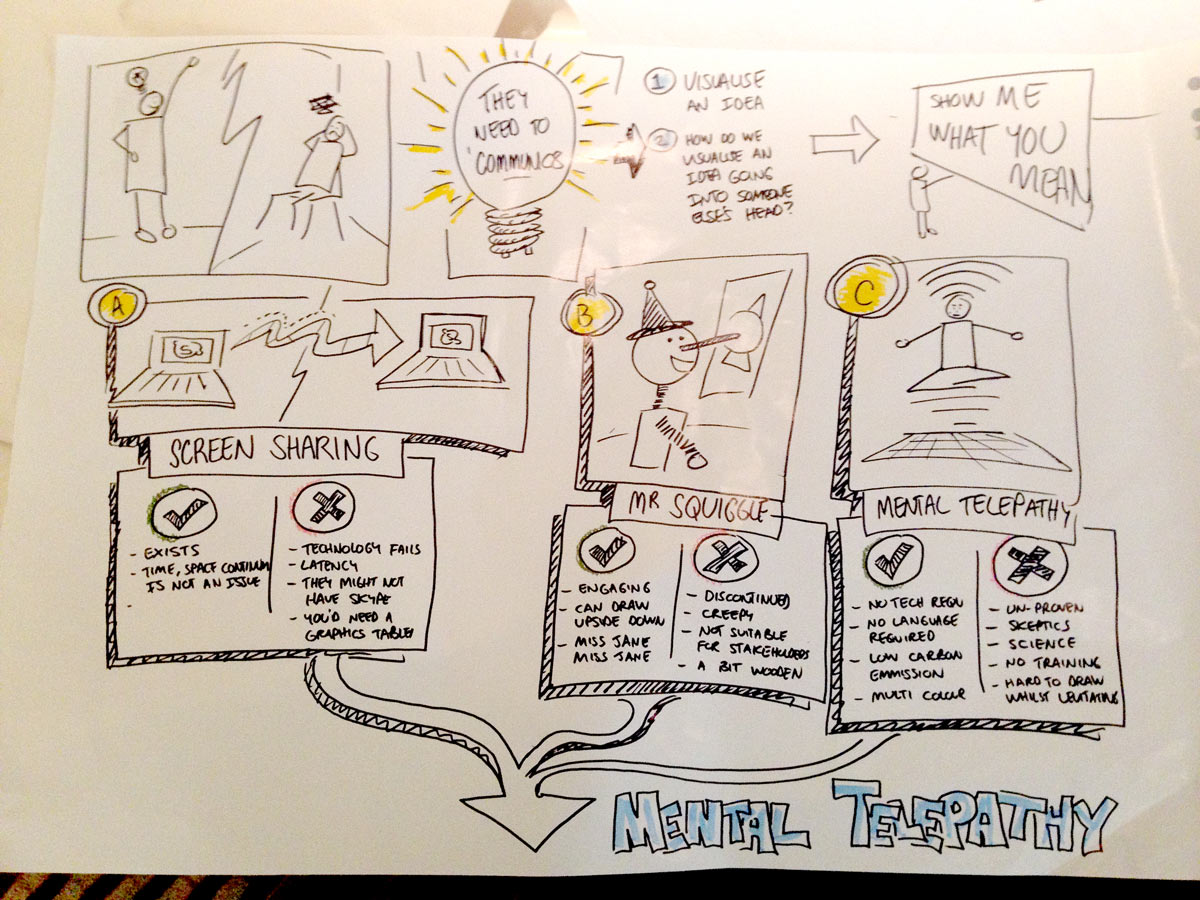 THEY
NEED TO
COMMUNICS
1 VISUALISE
AN IDEA
2 HOW DO WE
VISUALISE AN
IDEA GOING
INTO SOMEONE
ELSE'S HEAD?
SHOW ME
WHAT YOU
MEAN
A
SCREEN SHARING
- EXISTS
- TIME, SPACE CONTINUM
IS NOT AN ISSUE
-
- TECHNOLOGY FAILS
- LATENCY
- THEY MIGHT NOT
HAVE SKYPE
- YOU'D NEED A
GRAPHICS TABLET
B
MR SQUIGGLE
- ENGAGING
- CAN DRAW
UPSIDE DOWN
- MISS JANE
MISS JANE
- DISCONTINUED
- CREEPY
- NOT SUITABLE
FOR STAKEHOLDERS
- A BIT WOODEN
C
MENTAL TELEPATHY
- NO TECH REQU
- NO LANGUAGE
REQUIRED
- LOW CARBON
EMMISSION
- MULTI COLOUR
- UN-PROVEN
- SKEPTICS
- SCIENCE
- NO TRAINING
- HARD TO DRAW
WHILST LEVITATING
MENTAL TELEPATHY